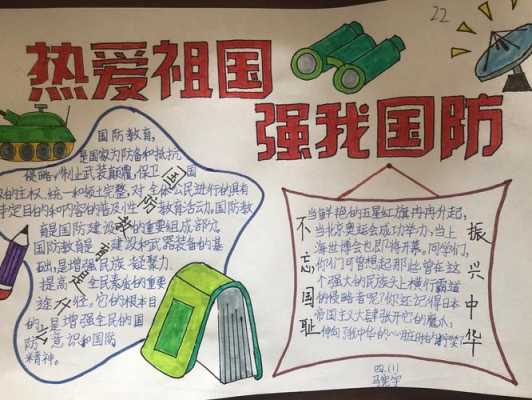 22
热爱祖国
强我国防
国防教育,
是国家为防备和抵抗
侵略,制止武装颠覆,保卫国
的主权、统一和领土完整,对全体公民进行的具有
特定目的和内容的普及性教育活动。国防教
育是国防建设的重要组成部分。
国防教育是建设和武器装备的基
础,是增强民族凝聚力,
提高全民素质的重要
途径。它的根本目
的是增强全民的国
防意识和国防
精神。
国防教育
不忘国耻
当鲜艳的五星红旗冉冉升起,
当北京奥运会成功举办,当上
海世博会也即将开幕,同学们,
你们可曾想起那些曾在这
个强大的民族头上横行霸道
的侵略者呢?你还记得日本
帝国主义大肆张开它的魔爪,
伸向中华的心脏时的
振兴中华
四.(1)